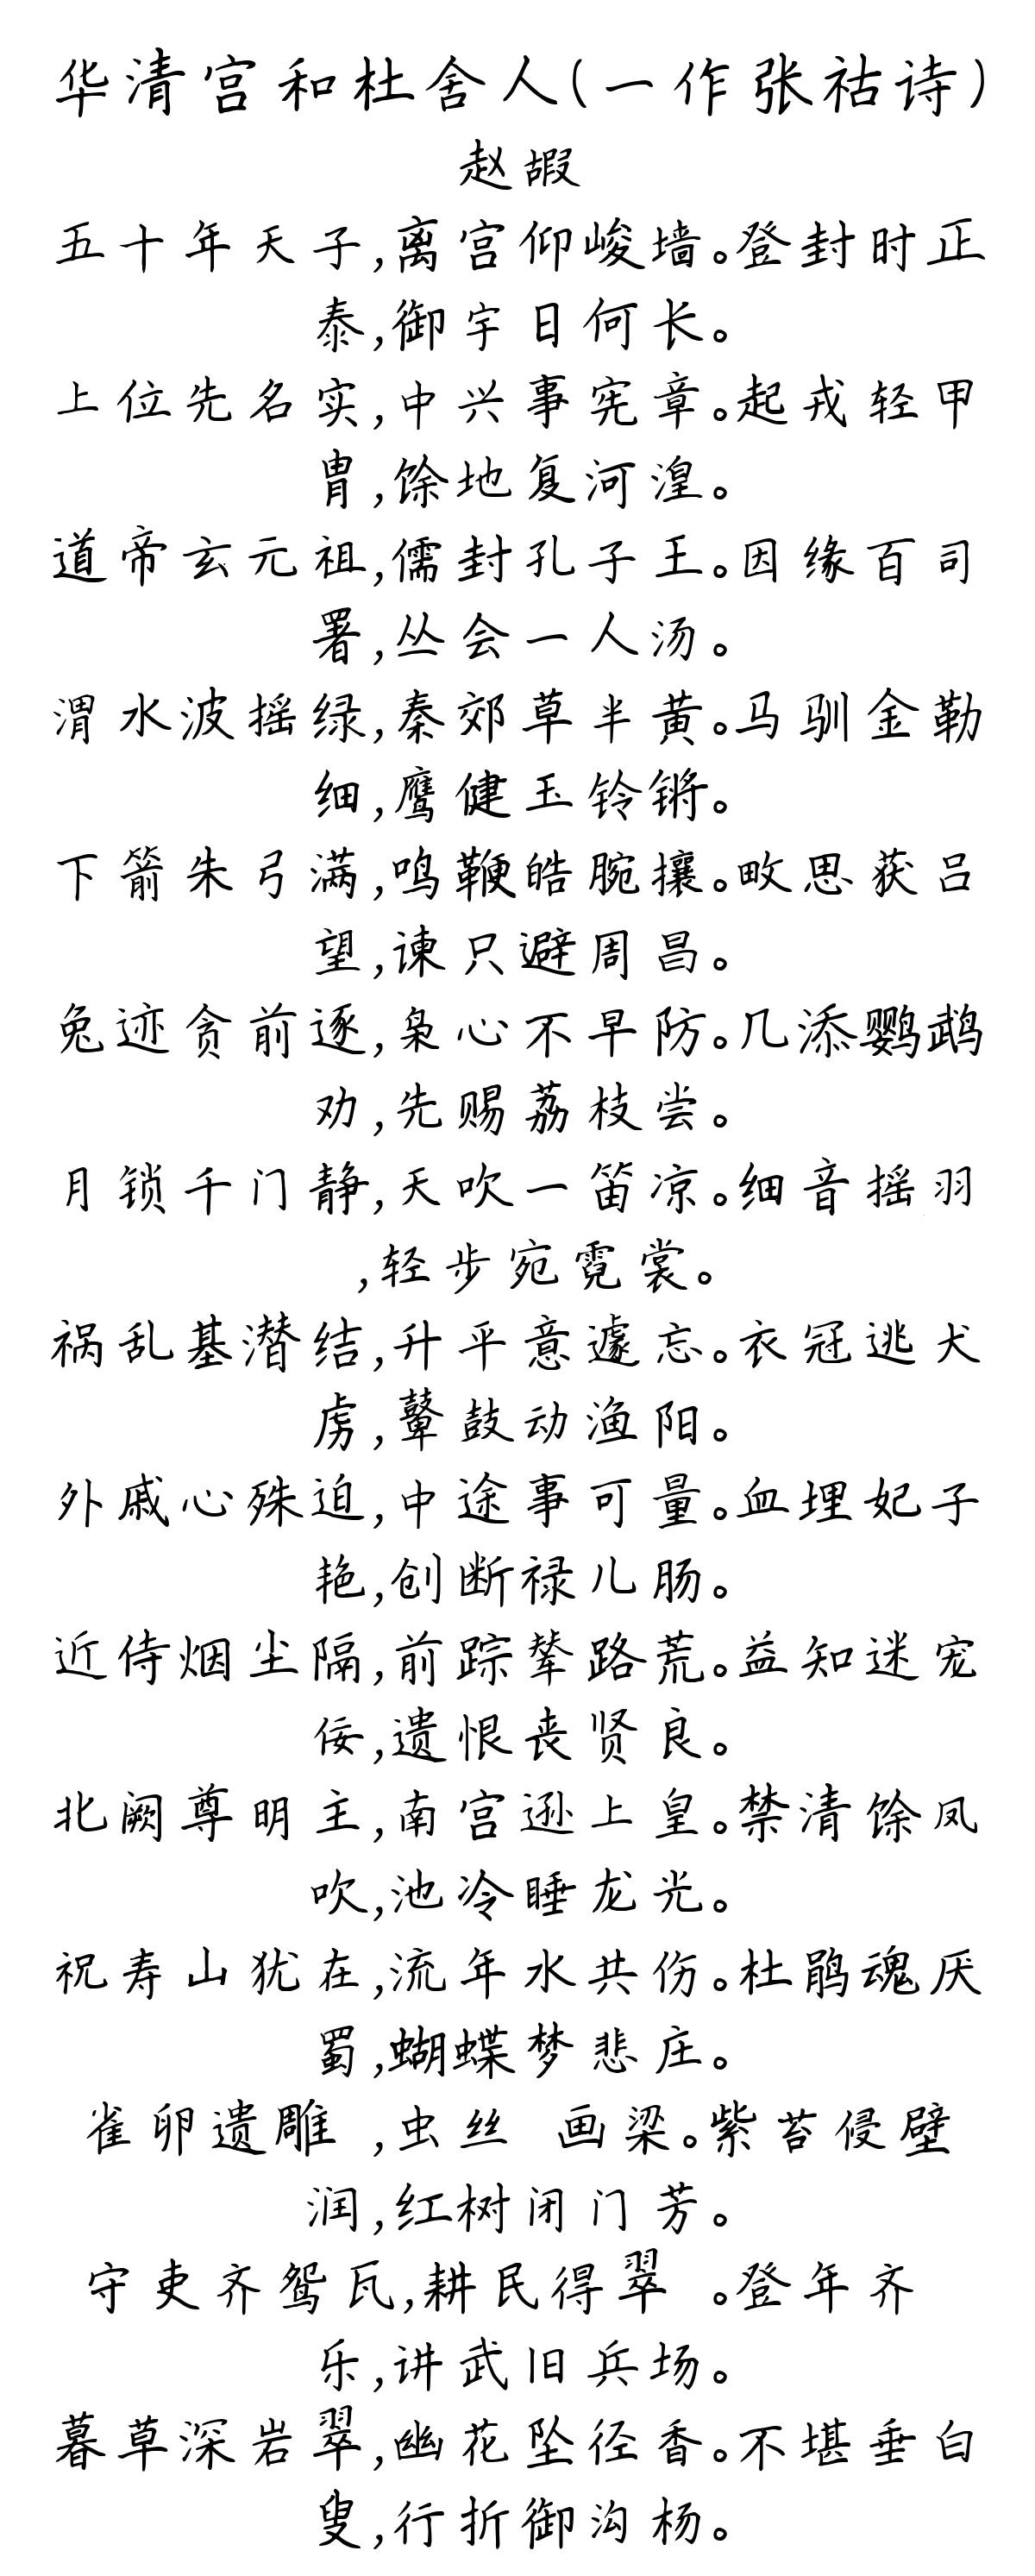 华清宫和杜舍人(一作张祜诗)
赵嘏
五十年天子,离宫仰峻墙。登封时正
泰,御宇日何长。
上位先名实,中兴事宪章。起戎轻甲
胄,馀地复河湟。
道帝玄元祖,儒封孔子王。因缘百司
署,丛会一人汤。
渭水波摇绿,秦郊草半黄。马驯金勒
细,鹰健玉铃锵。
下箭朱弓满,鸣鞭皓腕攘。畋思获吕
望,谏只避周昌。
兔迹贪前逐,枭心不早防。几添鹦鹉
劝,先赐荔枝尝。
月锁千门静,天吹一笛凉。细音摇羽
,轻步宛霓裳。
祸乱基潜结,升平意遽忘。衣冠逃犬
虏,鼙鼓动渔阳。
外戚心殊迫,中途事可量。血埋妃子
艳,创断禄儿肠。
近侍烟尘隔,前踪辇路荒。益知迷宠
佞,遗恨丧贤良。
北阙尊明主,南宫逊上皇。禁清馀凤
吹,池冷睡龙光。
祝寿山犹在,流年水共伤。杜鹃魂厌
蜀,蝴蝶梦悲庄。
雀卵遗雕 ,虫丝 画梁。紫苔侵壁
润,红树闭门芳。
守吏齐鸳瓦,耕民得翠 。登年齐
乐,讲武旧兵场。
暮草深岩翠,幽花坠径香。不堪垂白
叟,行折御沟杨。